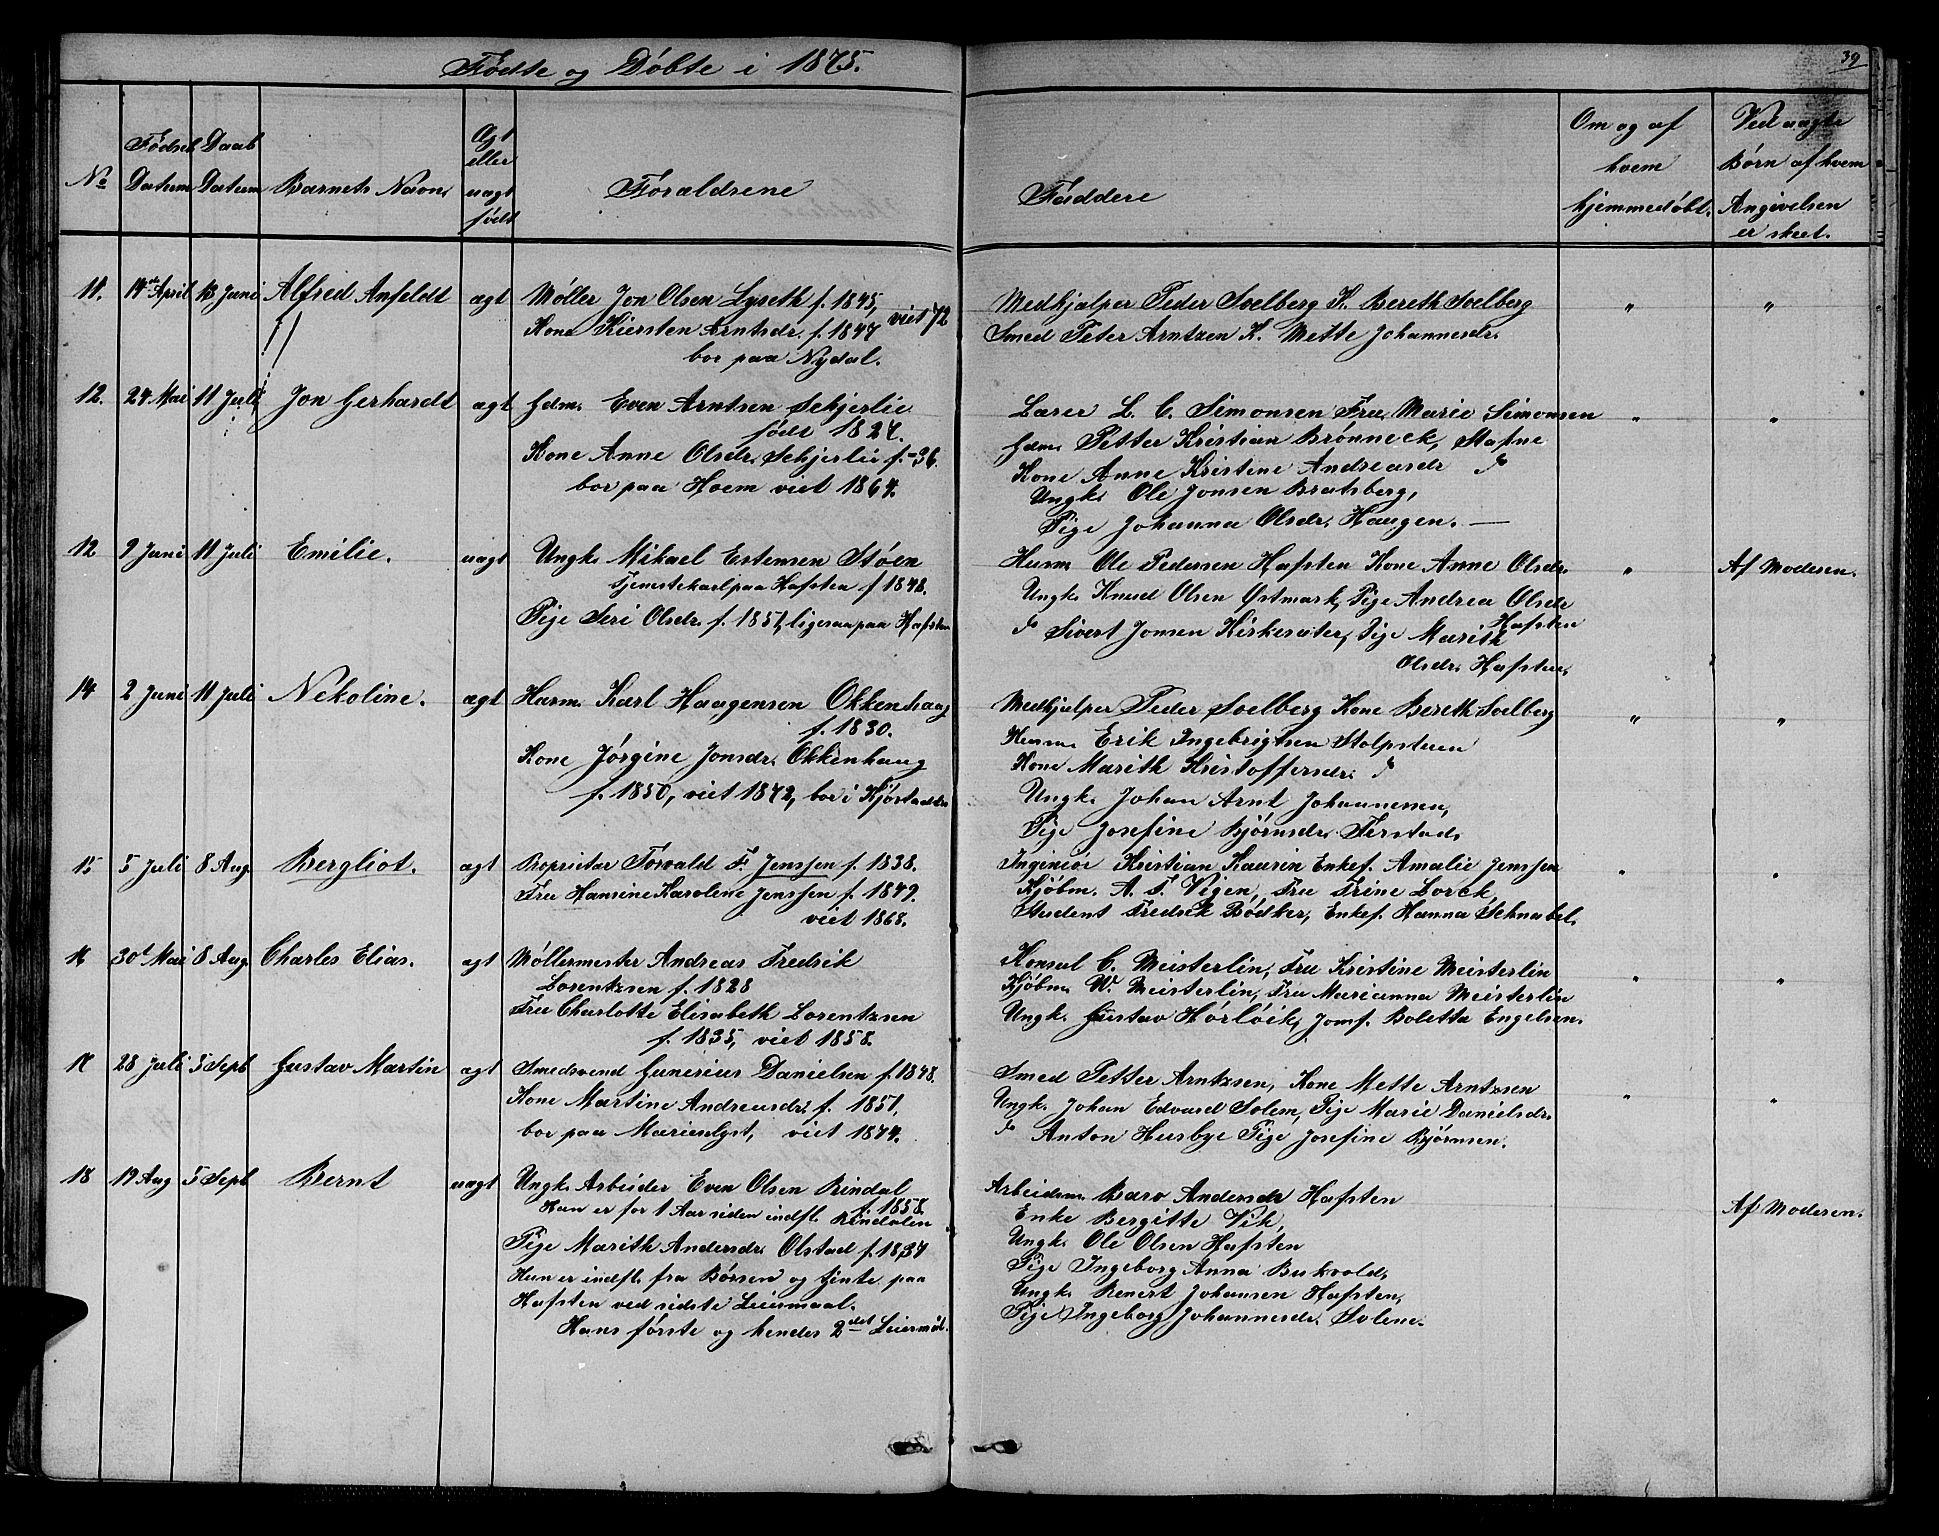 Fødte og Døbte i 1875.
39
No
Fødsel Datum
Daab Datum
Barnets Navn
Ægt eller uægt født
Forældrene
Faddere
Om og af hvem hjemmedøbt.
Ved uægte Børn af hvem Angivelsen er skeet.
11. 14de April 13 Juni Alfred Anfeldt ægt
Møller Jon Olsen Lyseth f. 1845,
Kone Kiersten Arntsdr. f. 1847 viet 72
bor paa Nydal.
Medhjælper Peder Soelberg K. Bereth Soelberg
Smed Peter Arntzen K. Mette Johannesdr.
" "
12. 24 Mai 11 Juli Jon Gerhardt ægt
Gdm. Even Arntsen Schjerlie
født 1827.
Kone Anne Olsdr. Schjerlie f. -36.
bor paa Hoem viet 1864.
Lærer L. C. Simonsen Fru Marie Simonsen
Gdm. Petter Kristian Brønneck, Stafne
Kone Anne Kristine Andreasdr do
Ungk. Ole Jonsen Bratsberg,
Pige Johanna Olsdr. Haugen. —
" "
12 9 Juni 11 Juli Emilie. uægt
Ungk. Mikael Estensen Støen
Tjenestekarl paa Hafsten f 1848.
Pige Seri Olsdr. f. 1851, ligesaa paa Hafsten
Husm Ole Pedersen Hafsten Kone Anne Olsdr.
Ungk. Knud Olsen Østmark, Pige Andrea Olsdr
Hafsten
do Sivert Jonsen Kirkesæter, Pige Marith
Olsdr. Hafsten.
" Af Moderen.
14 2 Juni 11 Juli Nekoline. ægt
Husm. Karl Haagensen Okkenhaug
f. 1830.
Kone Jørgine Jonsdr. Okkenhaug
f. 1850, viet 1872, bor i Kjøstaddr
Medhjælper Peder Soelberg Kone Bereth Soelberg
Husm Erik Ingebrigtsen Stolpstuen
Kone Marith Kristoffersdr. do
Ungk. Johan Arnt Johannesen,
Pige Josefine Bjørnsdr. Ferstad,
" "
15 5 Juli 8 Aug. Bergliot. ægt
Proprietær Torvald F. Jenssen f. 1838.
Fru Hansine Karoline Jenssen f. 1849.
viet 1868.
Ingeniør Kristian Kaurin Enkef. Amalie Jenssen
Kjøbm. A. F. Vigen, Fru Trine Lorck,
Student Fredrik Bødker, Enkef. Hanna Schnabel.
" "
16 30t Mai 8 Aug. Charles Elias. ægt
Møllermester Andreas Fredrik
Lorentzsen f. 1828
Fru Charlotte Elisabeth Lorentzsen
f. 1835, viet 1858.
Konsul C. Meisterlin, Fru Kristine Meisterlin
Kjøbm. W. Meisterlin, Fru Marianna Meisterlin
Ungk. Gustav Hørløck, Jomf. Boletta Engelsen.
" "
17 28 Juli 5 Sept Gustav Martin ægt
Smedsvend Gunerius Danielsen f. 1848.
Kone Martine Andreasdr. f. 1851,
bor paa Marienlyst, viet 1874.
Smed Petter Arntzsen, Kone Mette Arntzsen
Ungk. Johan Edvard Solem, Pige Marie Danielsdr.
do Anton Husbye Pige Josefine Bjørnsen.
" "
18 19 Aug 5 Sept Bernt uægt
Ungk. Arbeider Even Olsen Rindal
f. 1858.
Han er for 1 Aar siden indfl. Rindalen
Pige Marith Andersdr. Olstad f. 1837
Hun er indfl. fra Børsen og tjente paa
Hafsten ved sidste Leiermaal.
Hans første og hendes 2det Leiermål.
Arbeidsm. Baro Andersdr Hafsten
Enke Bergitte Vik,
Ungk. Ole Olsen Hafsten
Pige Ingeborg Anna Bukvold,
Ungk. Renert Johansen Hafsten,
Pige Ingeborg Johannesdr. Solem.
Af Moderen.